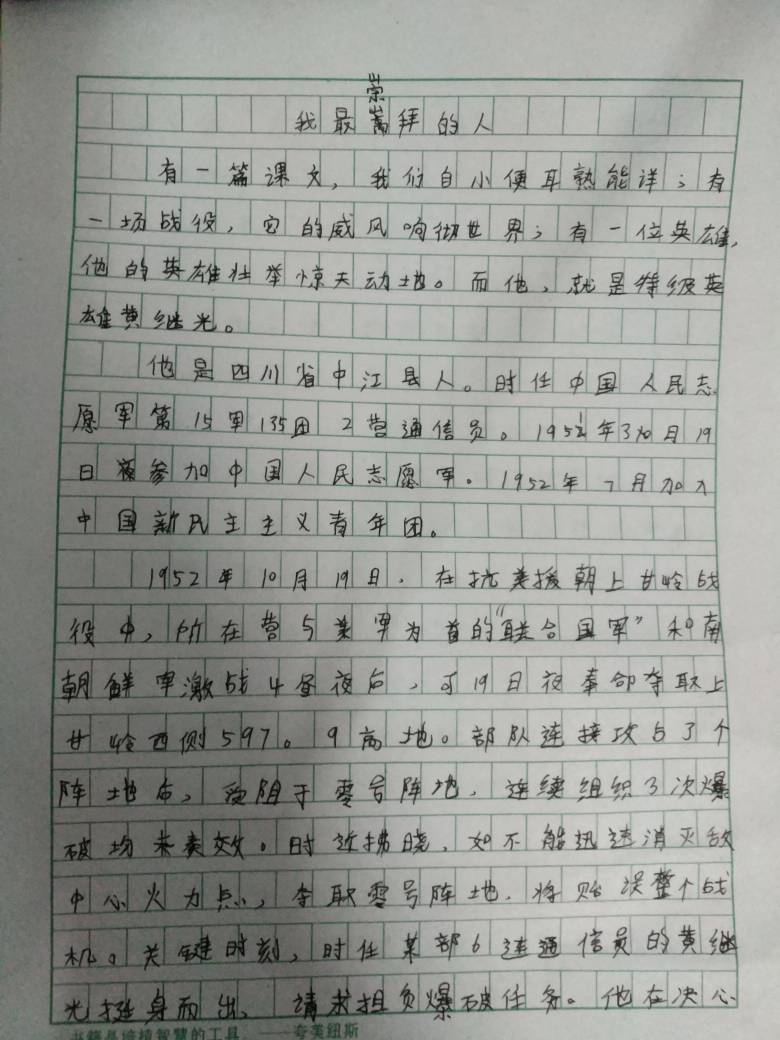 崇
我最嵩拜的人
有一篇课文，我们自小便耳熟能详；有
一场战役，它的威风响彻世界；有一位英雄，
他的英雄壮举惊天动地。而他，就是特级英
雄黄继光。
他是四川省中江县人。时任中国人民志
愿军第15军135团2营通信员。1951年3月19
日参加中国人民志愿军。1952年7月加入
中国新民主主义青年团。
1952年10月19日，在抗美援朝上甘岭战
役中，所在营与美军为首的“联合国军”和南
朝鲜军激战4昼夜后，于19日夜奉命夺取上
甘岭西侧597。9高地。部队连接攻占3个
阵地后，受阻于零号阵地，连续组织3次爆
破均未奏效。时近拂晓，如不能迅速消灭敌
中心火力点，夺取零号阵地，将贻误整个战
机。关键时刻，时任某部6连通信员的黄继
光挺身而出，请求担负爆破任务。他在决心
书籍是培植智慧的工具 ——夸美纽斯